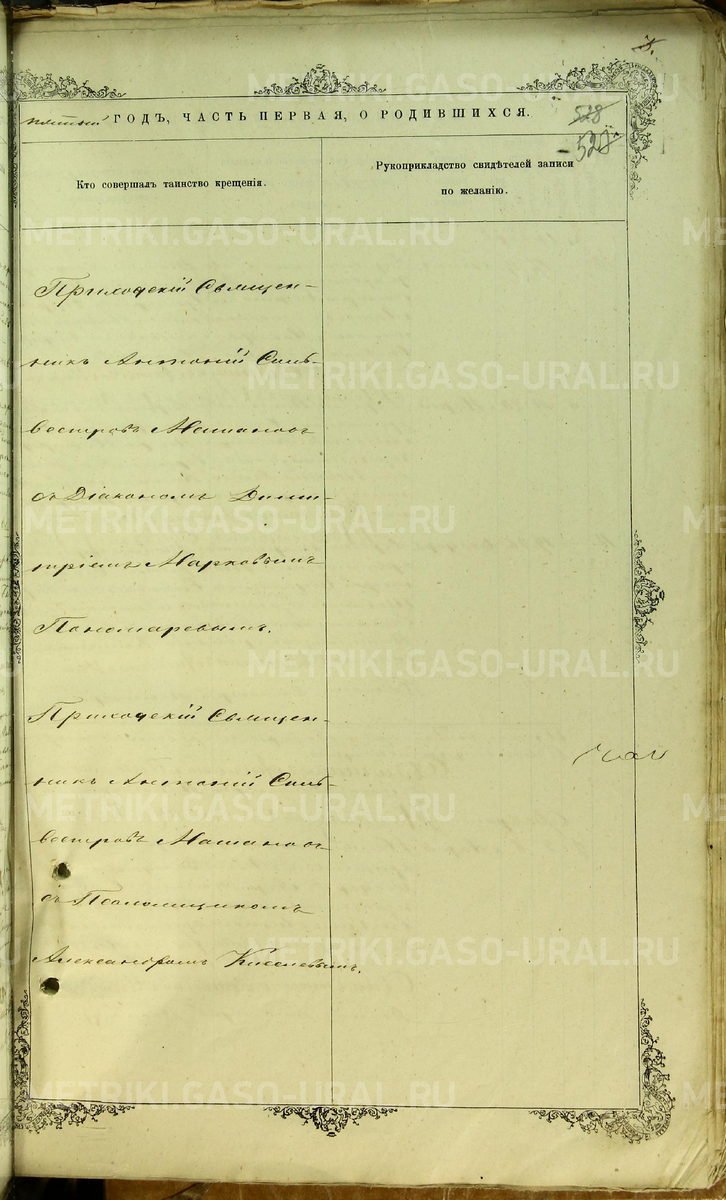 пятый ГОДЪ, ЧАСТЬ ПЕРВАЯ, О РОДИВШИХСЯ.
528
528
Кто совершалъ таинство крещенія.
Рукоприкладство свидѣтелей записи
по желанію.
Приходскій Священ-
никъ Антоній Силь-
вестровъ Машановъ
съ Діакономъ Дими-
тріемъ Марковымъ
Пономаревымъ.
Приходскій Священ-
никъ Антоній Силь-
вестровъ Машановъ
съ Псаломщикомъ
Александромъ Киселевымъ.
METRIKI.GASO-URAL.RU